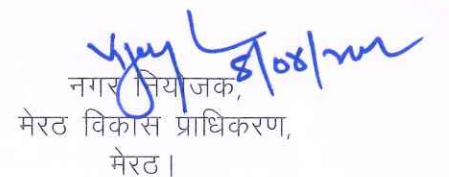 8/08/
नगर नियोजक,
मेरठ विकास प्राधिकरण,
मेरठ।